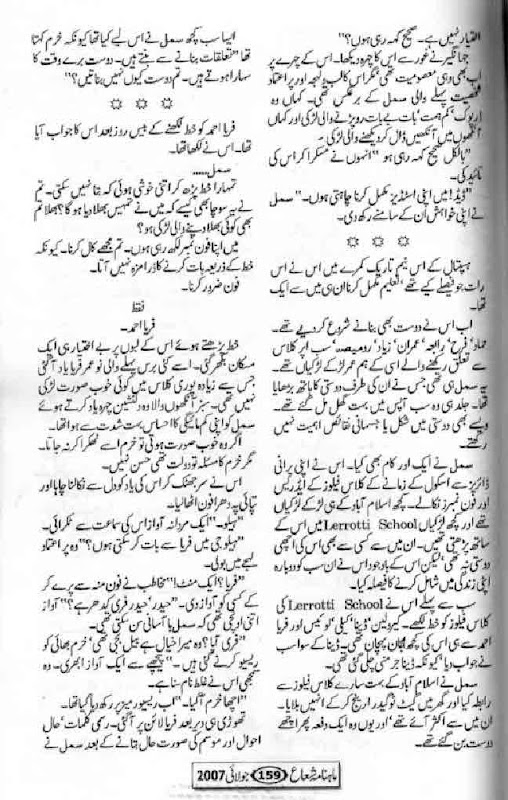 اختیار نہیں ہے۔ صحیح کہہ رہی ہوں؟“
جہانگیر نے غور سے اس کا چہرہ دیکھا۔ اس کے چہرے پر
اب بھی وہی معصومیت تھی، مگر اس کا لب و لہجہ اور پر اعتماد
شخصیت پہلے والی سمل کے برعکس تھی۔ کہاں وہ
ڈرپوک، کم ہمت، بات بے بات رو پڑنے والی لڑکی اور کہاں
آنکھوں میں آنکھیں ڈال کر دیکھنے والی لڑکی۔
”بالکل صحیح کہہ رہی ہو“ انہوں نے مسکرا کر اس کی
تائید کی۔
”ڈیڈ! میں اپنی اسٹڈیز مکمل کرنا چاہتی ہوں۔“ سمل
نے اپنی خواہش ان کے سامنے رکھ دی۔
☼ ☼ ☼
ہسپتال کے اس نیم تاریک کمرے میں اس نے اس
رات جو فیصلے کیے تھے، تعلیم مکمل کرنا ان ہی میں سے ایک
تھا۔
اب اس نے دوست بھی بنانے شروع کر دیے تھے۔
حماد، فرح، رابعہ، عمران، زیاد، رومیصہ، سب اپر کلاس
سے تعلق رکھنے والے اسی کے ہم عمر لڑکے لڑکیاں تھے۔
یہ سمل ہی تھی جس نے ان کی طرف دوستی کا ہاتھ بڑھایا
تھا۔ جلد ہی وہ سب آپس میں بہت گھل مل گئے تھے۔
ویسے بھی دوستی میں شکل یا جسمانی نقائص اہمیت نہیں
رکھتے۔
سمل نے ایک اور کام بھی کیا۔ اس نے اپنی پرانی
ڈائریز سے اسکول کے زمانے کے کلاس فیلوز کے ایڈریس
اور فون نمبرز نکالے۔ کچھ اسلام آباد کے ہی لڑکے لڑکیاں
تھے اور کچھ لڑکیاں Lerrotti School میں اس کے
ساتھ پڑھتی تھیں۔ ان میں سے کسی سے بھی اس کی اچھی
دوستی نہ تھی، لیکن اس کے باوجود اس نے ان سب کو دوبارہ
اپنی زندگی میں شامل کرنے کا فیصلہ کیا۔
سب سے پہلے اس نے Lerrotti School کی
کلاس فیلوز کو خط لکھے۔ کیرولین، ڈینا، کیلی، لوئیس اور فریا
احمد سے ہی اس کی کچھ جان پہچان تھی۔ ڈینا کے سوا سب
نے جواب دیا، کیونکہ ڈینا جرمنی چلی گئی تھی۔
سمل نے اسلام آباد کے بہت سارے کلاس فیلوز سے
رابطہ کیا اور گھر میں گیٹ ٹو گیدر ارینج کر کے انہیں بلایا۔
ان میں سے اکثر آئے تھے، اور یوں وہ ایک دفعہ پھر اچھے
دوست بن گئے تھے۔
ایسا سب کچھ سمل نے اس لیے کیا تھا کیونکہ خرم کہتا
تھا ”تعلقات بنانے سے بنتے ہیں۔ دوست برے وقت کا
سہارا ہوتے ہیں۔ تم دوست کیوں نہیں بناتیں؟“
☼ ☼ ☼
فریا احمد کو خط لکھنے کے بیس روز بعد اس کا جواب آیا
تھا۔ اس نے لکھا تھا۔
سمل.....
تمہارا خط پڑھ کر اتنی خوشی ہوئی کہ بتا نہیں سکتی۔ تم
نے یہ سوچا بھی کیسے کہ میں نے تمہیں بھلا دیا ہو گا؟ بھلا تم
بھی کوئی بھلا دینے والی لڑکی ہو؟
میں اپنا فون نمبر لکھ رہی ہوں۔ تم مجھے کال کرنا۔ کیونکہ
خط کے ذریعہ بات کرنے کا ذرا مزہ نہیں آتا۔
فون ضرور کرنا۔
فقط
فریا احمد۔
خط پڑھتے ہوئے اس کے لبوں پر بے اختیار ہی ایک
مسکان بکھر گئی۔ اسے کئی برس پہلے والی نو عمر فریا یاد آ گئی
جس سے زیادہ پوری کلاس میں کوئی خوب صورت لڑکی
نہیں تھی۔ سبز آنکھوں والا وہ دلنشیں چہرہ یاد کرتے ہوئے
سمل کو اپنی کم مائیگی کا احساس بہت شدت سے ہوا تھا۔
اگر وہ خوب صورت ہوتی تو خرم اسے ٹھکرا کر نہ جاتا۔
مگر خرم کا مسئلہ تو دولت تھی حسن نہیں۔
اس نے سر جھٹک کر اس کی یاد کو دل سے نکالنا چاہا اور
تپائی پہ دھرا فون اٹھا لیا۔
”ہیلو۔“ ایک مردانہ آواز اس کی سماعت سے ٹکرائی۔
”ہیلو جی میں فریا سے بات کر سکتی ہوں؟“ وہ پر اعتماد
لہجے میں بولی۔
”فریا؟ ایک منٹ!“ مخاطب نے فون منہ سے پرے کر
کے کسی کو آواز دی۔ ”حیدر، حیدر فری کدھر ہے؟“ آواز
اتنی اونچی تھی کہ سمل با آسانی سن سکتی تھی۔
”فری آپا؟ وہ میرا خیال ہے بیل بجی تھی، خرم بھائی کو
ریسیو کرنے گئی ہیں۔“ پیچھے سے ایک آواز ابھری۔ وہ
سمجھی اس نے غلط نام سنا ہے۔
”اچھا خرم آ گیا۔“ اب ریسیور میز پر رکھ دیا گیا تھا۔
تھوڑی ہی دیر بعد فریا لائن پر آ گئی۔ رسمی کلمات، حال
احوال اور موسم کی صورت حال بتانے کے بعد سمل نے
ماہنامہ شعاع 159 جولائی 2007